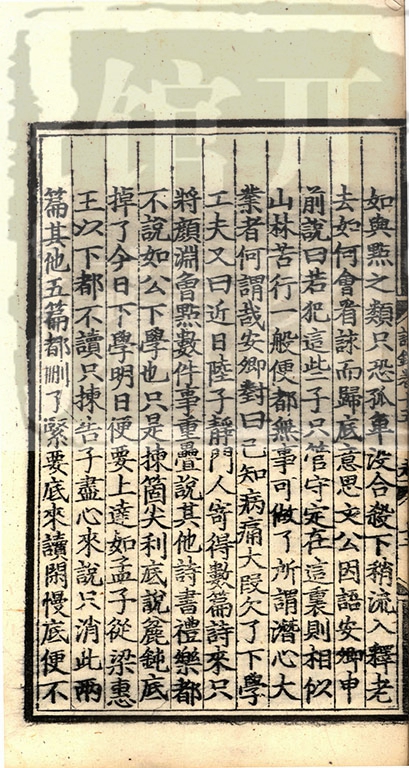 如與點之類只恐孤單沒合殺下稍流入釋老
去如何會看詠而歸底意思文公因語安卿申
前說曰若犯這些子只管守定在這裏則相似
山林苦行一般便都無事可做了所謂潛心大
業者何謂哉安卿對曰已知病痛大段欠了下學
工夫又曰近日陸子靜門人寄得數篇詩來只
將顏淵曾點數件事重疊說其他詩書禮樂都
不說如公下學也只是揀箇尖利底說麄鈍底
掉了今日下學明日便要上達如孟子從梁惠
王以下都不讀只揀告子盡心來說只消此兩
篇其他五篇都刪了緊要底來讀閑慢底便不